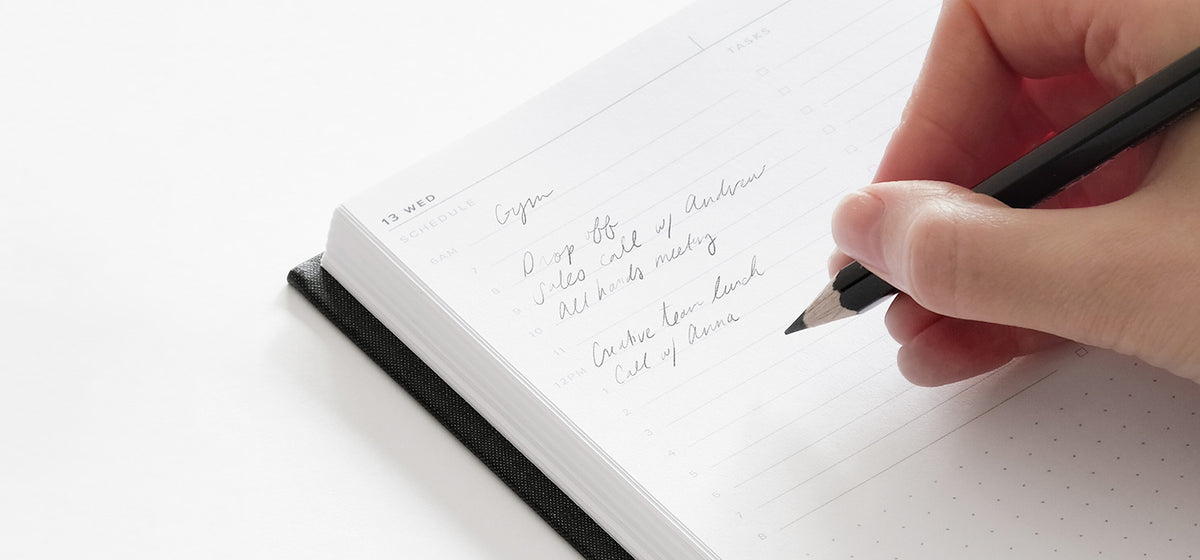 13 WED
SCHEDULE
TASKS
6AM Gym
7
8 Drop off
9 Sales call w/ Andrew
10 All hands meeting
11
12PM Creative team lunch
1 Call w/ Anna
2
3
4
5
6
7
8